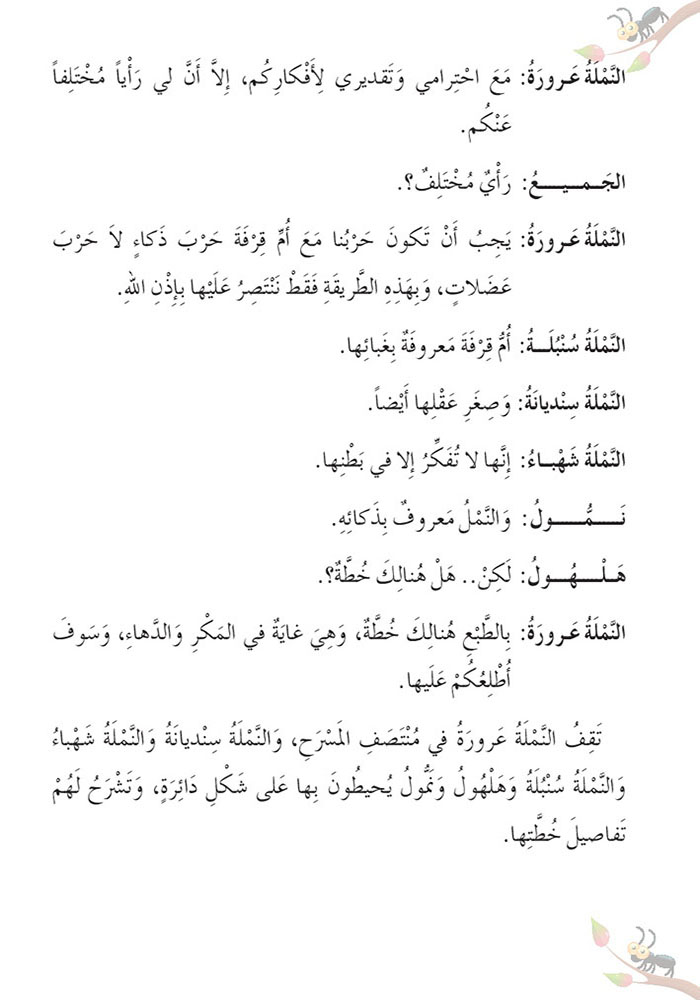 النَّمْلَةُ عَرورَةُ: مَعَ احْتِرامي وَتَقديري لِأَفْكارِكُم، إِلاَّ أَنَّ لي رَأْياً مُخْتَلِفاً
عَنْكُم.
الجَـمـيــعُ: رَأْيٌ مُخْتَلِفٌ؟.
النَّمْلَةُ عَرورَةُ: يَجِبُ أَنْ تَكونَ حَرْبُنا مَعَ أُمِّ قِرْفَةَ حَرْبَ ذَكاءٍ لاَ حَرْبَ
عَضَلاتٍ، وَبِهَذِهِ الطَّريقَةِ فَقَطْ نَنْتَصِرُ عَلَيْها بِإِذْنِ اللهِ.
النَّمْلَةُ سُنْبُلَــةُ: أُمُّ قِرْفَةَ مَعروفَةٌ بِغَبائِها.
النَّمْلَةُ سِنْديانَةُ: وَصِغَرِ عَقْلِها أَيْضاً.
النَّمْلَةُ شَهْبـاءُ: إِنَّها لا تُفَكِّرُ إلا في بَطْنِها.
نَـــمُّـــولُ: وَالنَّمْلُ مَعروفٌ بِذَكائِهِ.
هَـلْـــهُــولُ: لَكِنْ.. هَلْ هُنالِكَ خُطَّةٌ؟.
النَّمْلَةُ عَرورَةُ: بِالطَّبْعِ هُنالِكَ خُطَّةٌ، وَهِيَ غايَةٌ في المَكْرِ وَالدَّهاءِ، وَسَوفَ
أُطْلِعُكُمْ عَلَيها.
تَقِفُ النَّمْلَةُ عَرورَةُ في مُنْتَصَفِ المَسْرَحِ، وَالنَّمْلَةُ سِنْديانَةُ وَالنَّمْلَةُ شَهْباءُ
وَالنَّمْلَةُ سُنْبُلَةُ وَهَلْهُولُ وَنَمُّولُ يُحيطُونَ بِها عَلى شَكْلِ دَائِرَةٍ، وَتَشْرَحُ لَهُمْ
تَفاصيلَ خُطَّتِها.